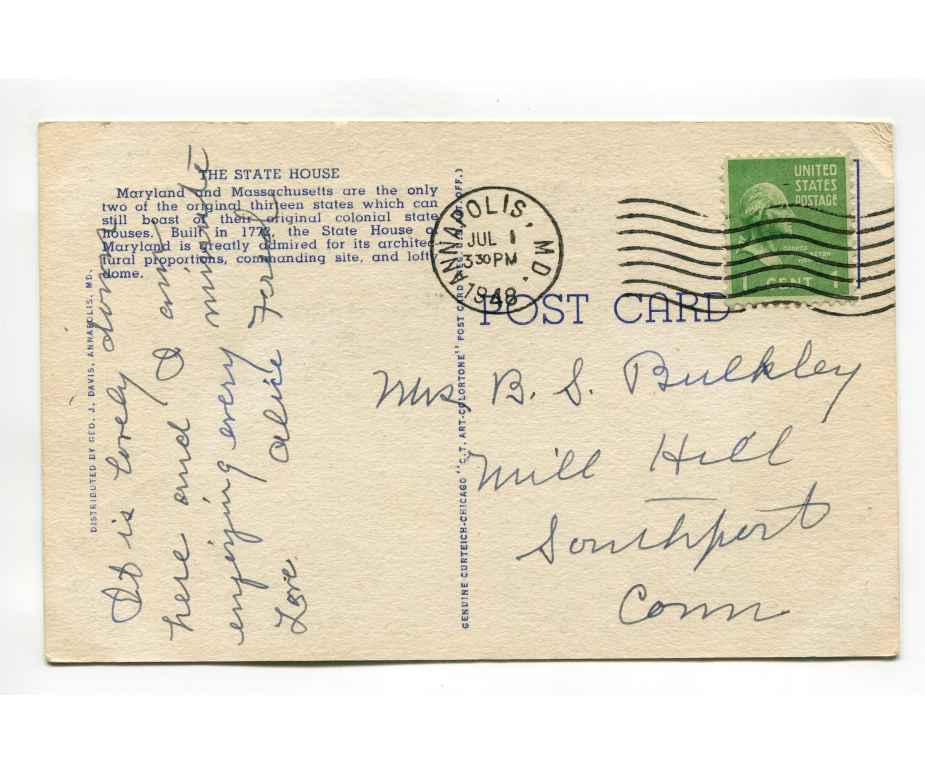 THE STATE HOUSE
Maryland and Massachusetts are the only
two of the original thirteen states which can
still boast of their original colonial state
houses. Built in 177, the State House o
Maryland is greatly admired for its architec
tural proportions, commanding site, and loft
dome.
DISTRIBUTED BY GEO. J. DAVIS, ANNAPOLIS, MD.
It is lovely down
here and I am
enjoying every minute
Love Alice
GENUINE CURTEICH-CHICAGO "C.T. ART-COLORTONE" POST CARD (REG. U.S. PAT. OFF.)
ANNAPOLIS, MD.
JUL 1
3 30 PM
1948
UNITED
STATES
POSTAGE
1 CENT 1
POST CARD
Mrs B. S. Bulkley
Mill Hill
Southport
Conn